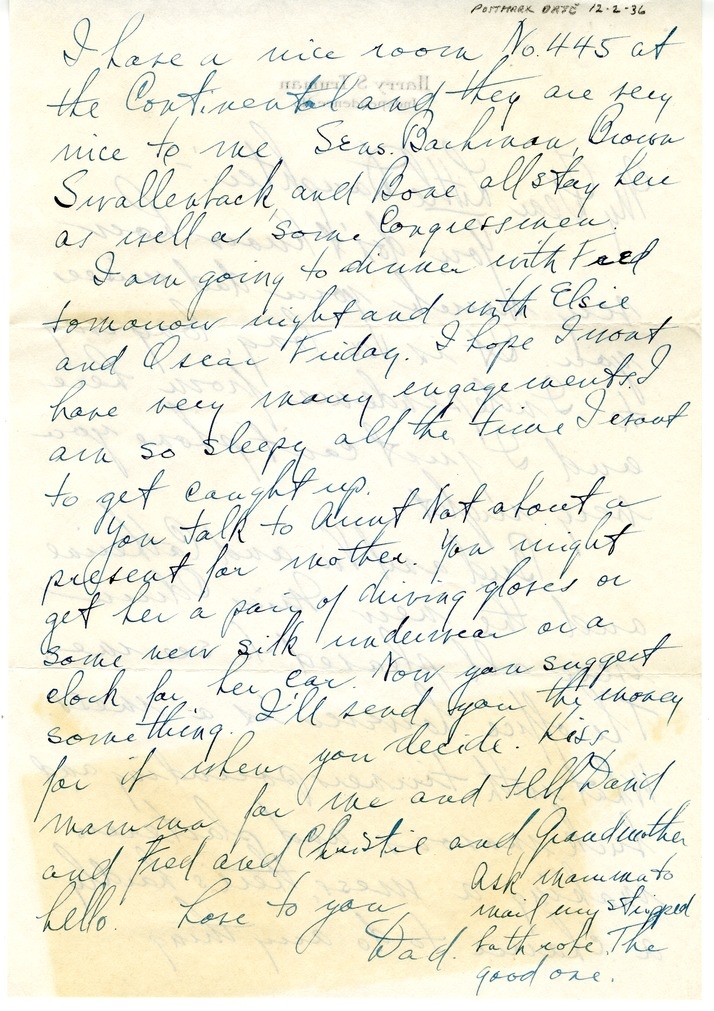 POSTMARK DATE 12-2-36
I have a nice room No. 445 at
the Continental and they are very
nice to me, Sens. Bachman, Brown
Swallenback, and Bone all stay here
as well as some Congressmen.
I am going to dinner with Fred
tomorrow night and with Elsie
and Oscar Friday. I hope I wont
have very many engagements. I
am so sleepy all the time I want
to get caught up.
You talk to Aunt Nat about a
present for mother. You might
get her a pair of driving gloves or
some new silk underwear or a
clock for her car. Now you suggest
something. I'll send you the money
for it when you decide. Kiss
mamma for me and tell David
and Fred and Christie and Grandmother
hello. Love to you
Dad.
Ask mamma to
mail my stripped
bath robe. The
good one.